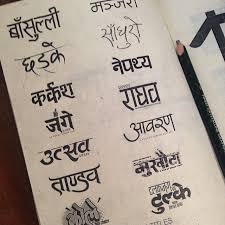 बाँसुल्ली
मञ्जरी
साँघुरो
छड्के
नेपथ्य
कर्कश
राघव
जंगे
आवरण
उत्सव
मुखौटा
ताण्डव